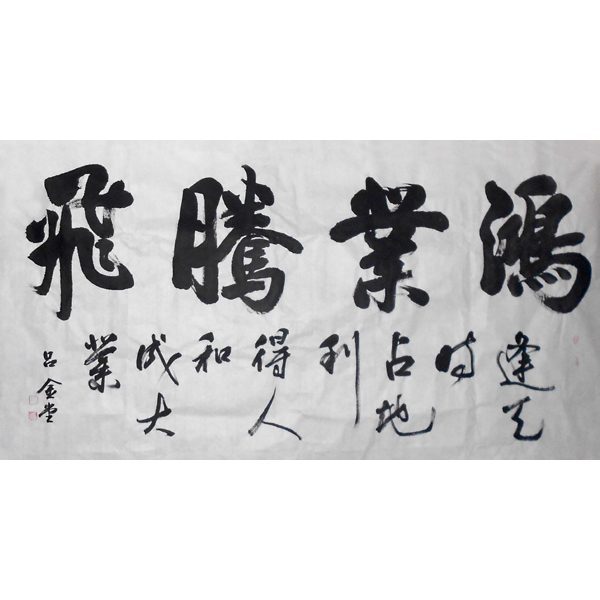 鴻業騰飛
逢天
时
占地
利
得人
和
成大
業
吕金堂